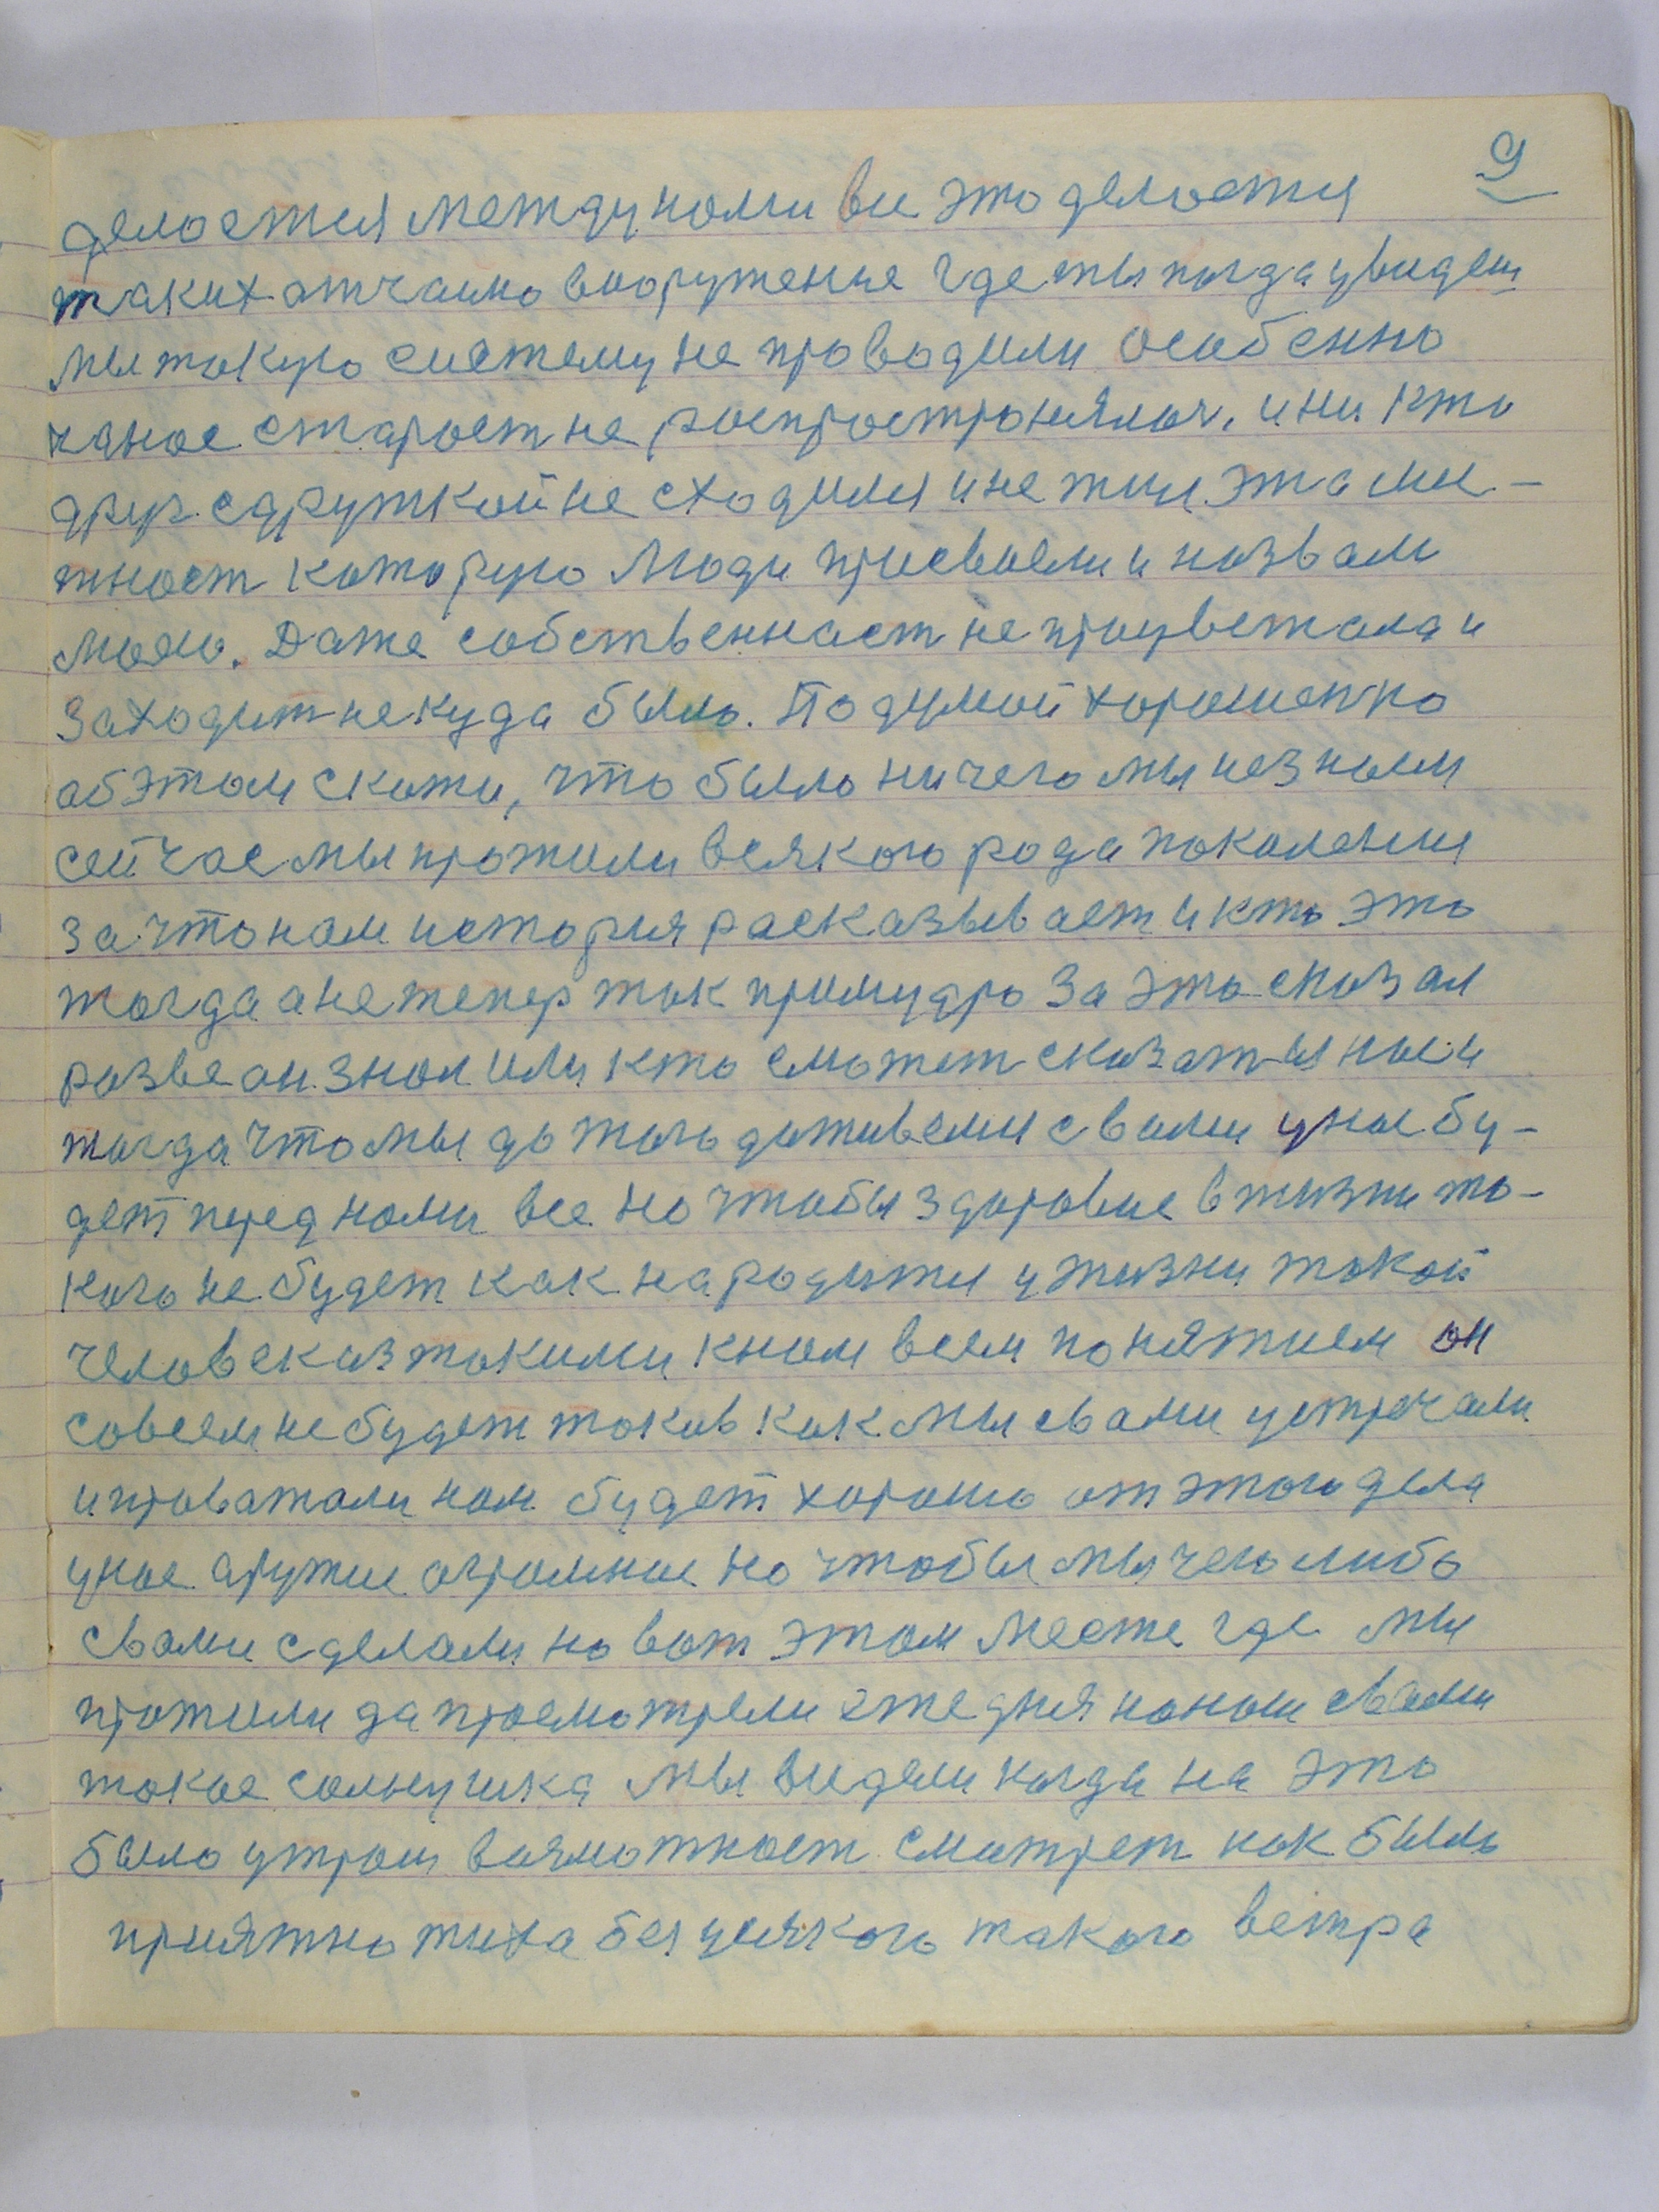 9
делается между нами все это делается
таких отчаино вооруженые где ты когда увидеш
мы такую систему не проводили особенно
чаное старост не роспространялося. и ни кто
друг сдружкой не сходился и не жил эта мес-
тност каторую люди присвоели и назвали
моею. Даже собственност не процветала и
заходит некуда было. Подумай хорошенько
об этом скажи, что было ничего мы незнаем
сейчас мы прожили всякого рода поколения
за что нам история расказывает и кто это
тогда а не тепер так примудро за это сказал
разве он знал или кто сможет сказат и нас и
тогда что мы до того доживемся свами у нас бу-
дет перед нами все но чтобы здоровие в жизни та-
кого не будет как народится у жизни такой
человек из такими к нам всем понятием он
совсем не будет таков как мы свами устречали
и проважали нам будет хорошо от этого дела
у нас аружие огромное но чтобы мы чего либо
свами сделали на вот этом месте где мы
прожили да просмотрели ежедня на нам свами
такое солнушка мы видели когда на это
было утром возможност сматрет как было
приятно тиха без усякого такого ветра